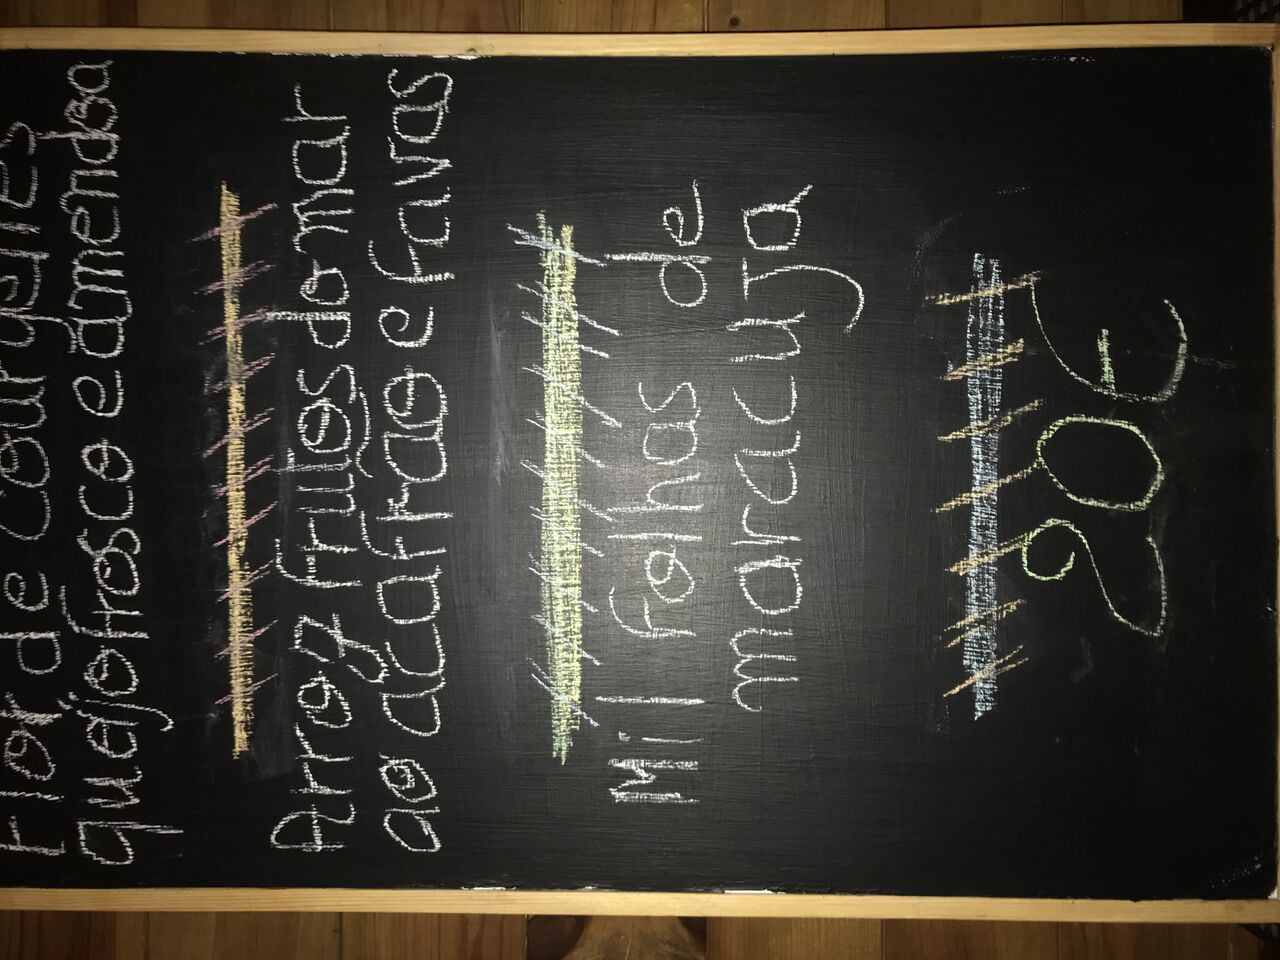 Flor de courgettes
queijo fresco e amendoa
Arroz frutos do mar
ao acafrão e favas
Mil folhas de
maracuja
20€